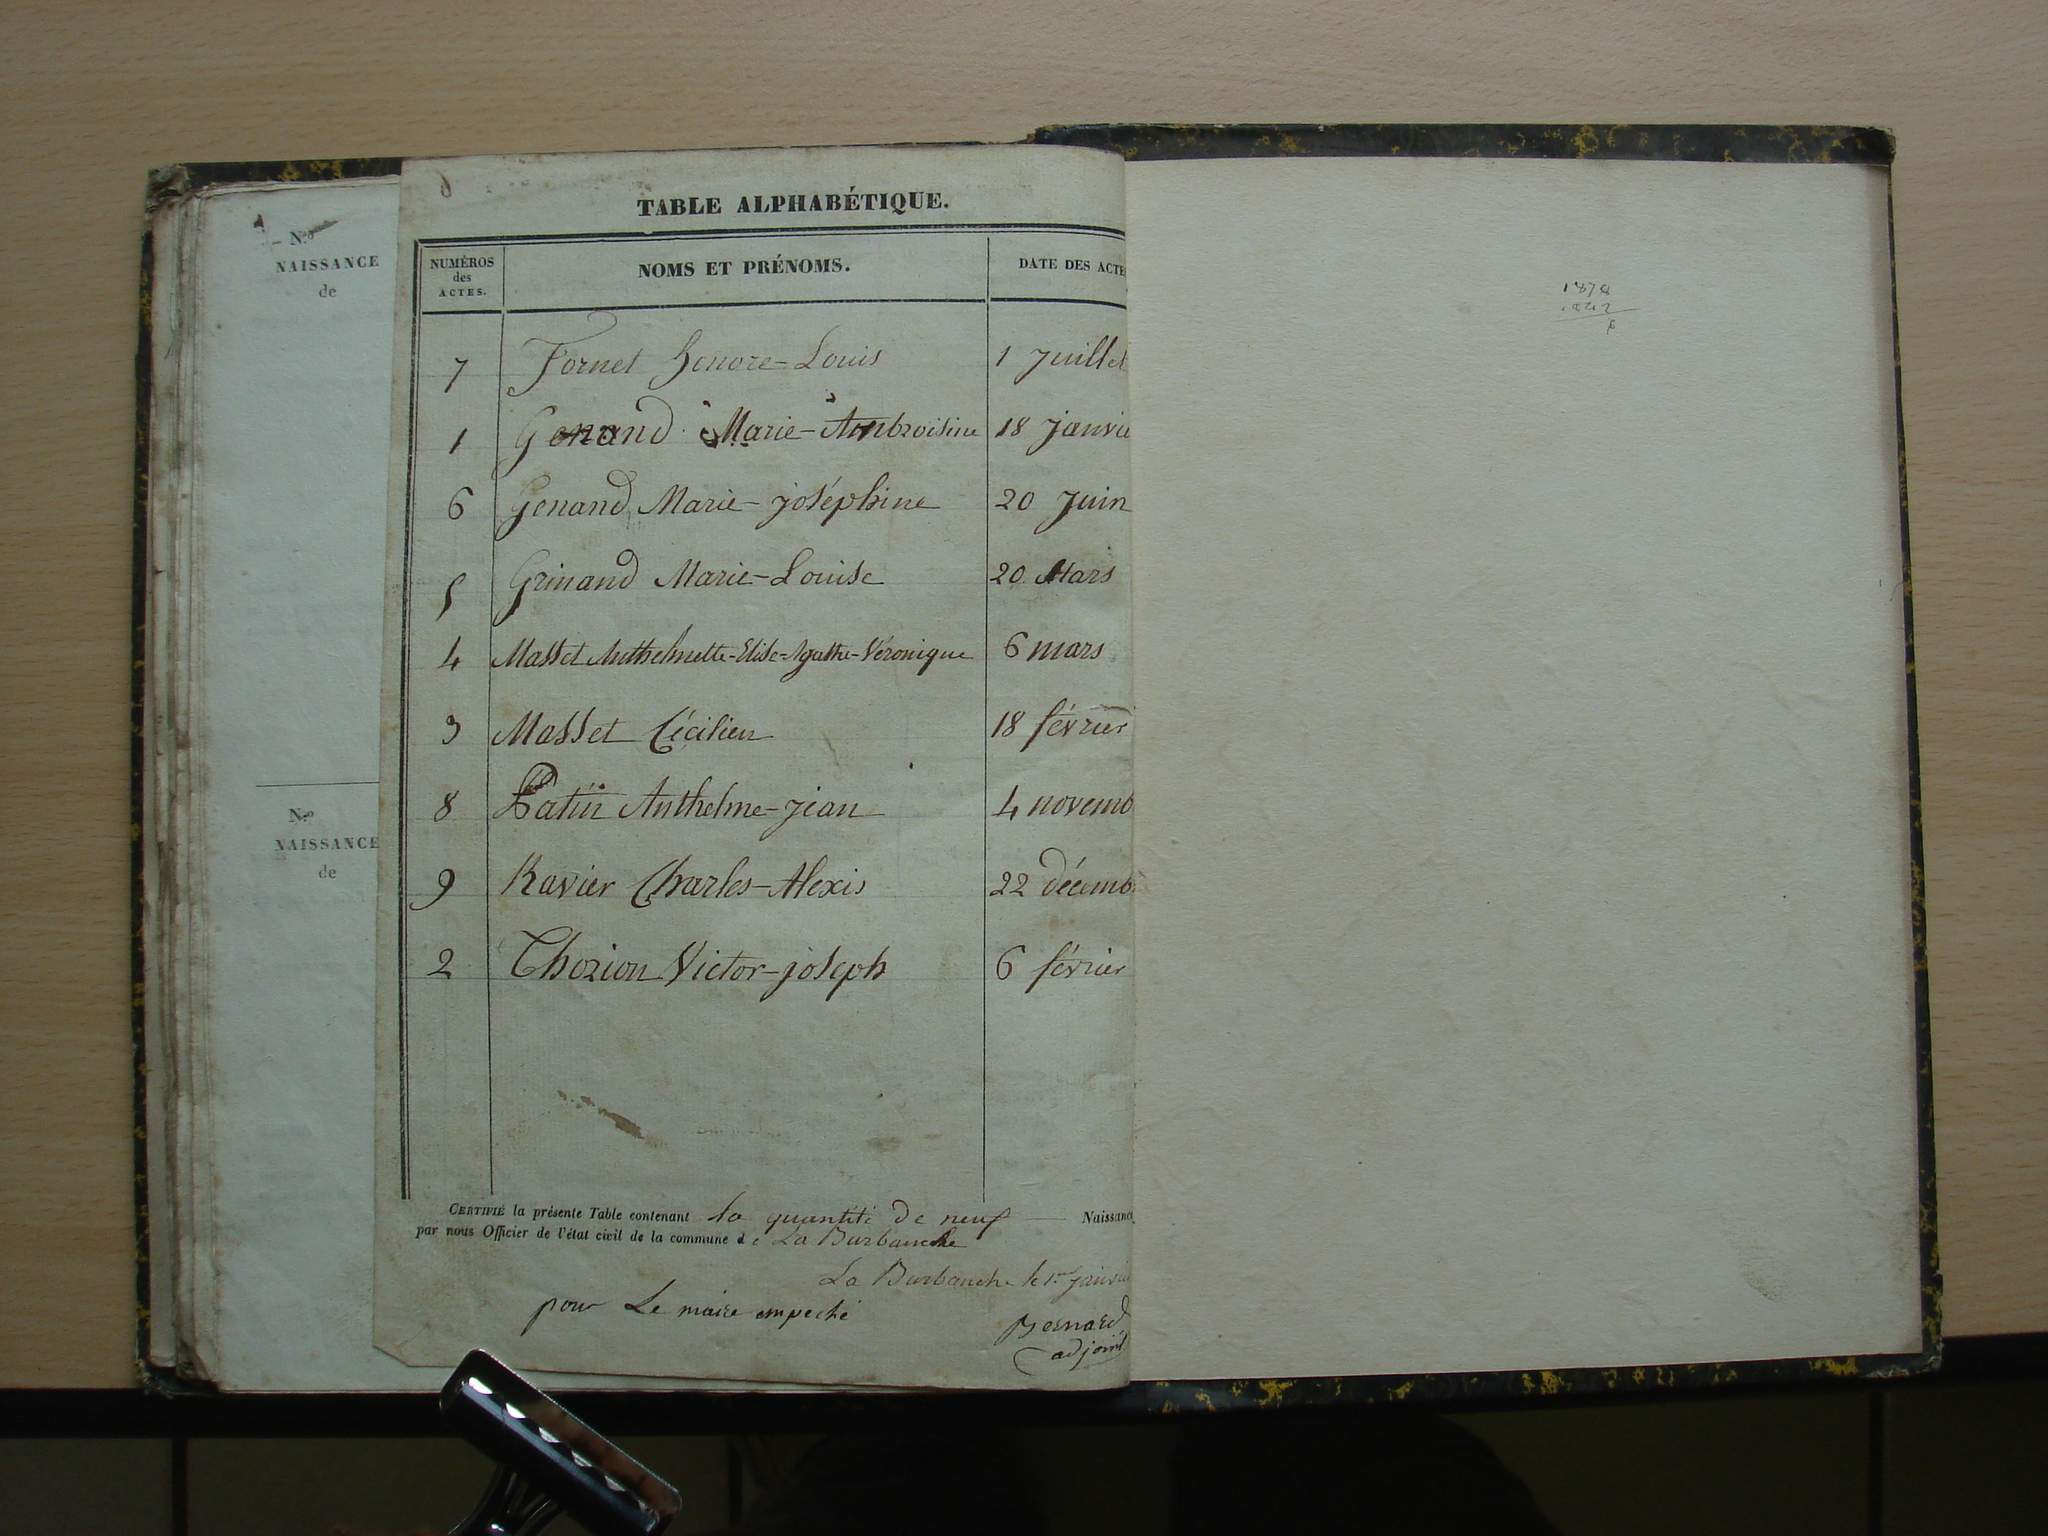 N.º
NAISSANCE
de
N.º
NAISSANCE
de
TABLE ALPHABÉTIQUE.
NUMÉROS des ACTES. NOMS ET PRÉNOMS. DATE DES ACTE
7 Fornet honore-Louis 1 Juillet
1 Genand Marie-Ambroisine 18 Janvie
6 Genand Marie-joséphine 20 Juin
5 Grinand Marie-Louise 20 Mars
4 Masset Anthelmette-Elise-Agathe-Véronique 6 mars
3 Masset Cécilien 18 février
8 Patin Anthelme-jean 4 novemb
9 Ravier Charles-Alexis 22 décemb
2 Thorion Victor-joseph 6 février
CERTIFIÉ la présente Table contenant la quantité de neuf Naissance
par nous Officier de l'état civil de la commune de La Burbanche
La Burbanche le 1er Janvie
pour Le maire empeché
Bernard
adjoint
1878